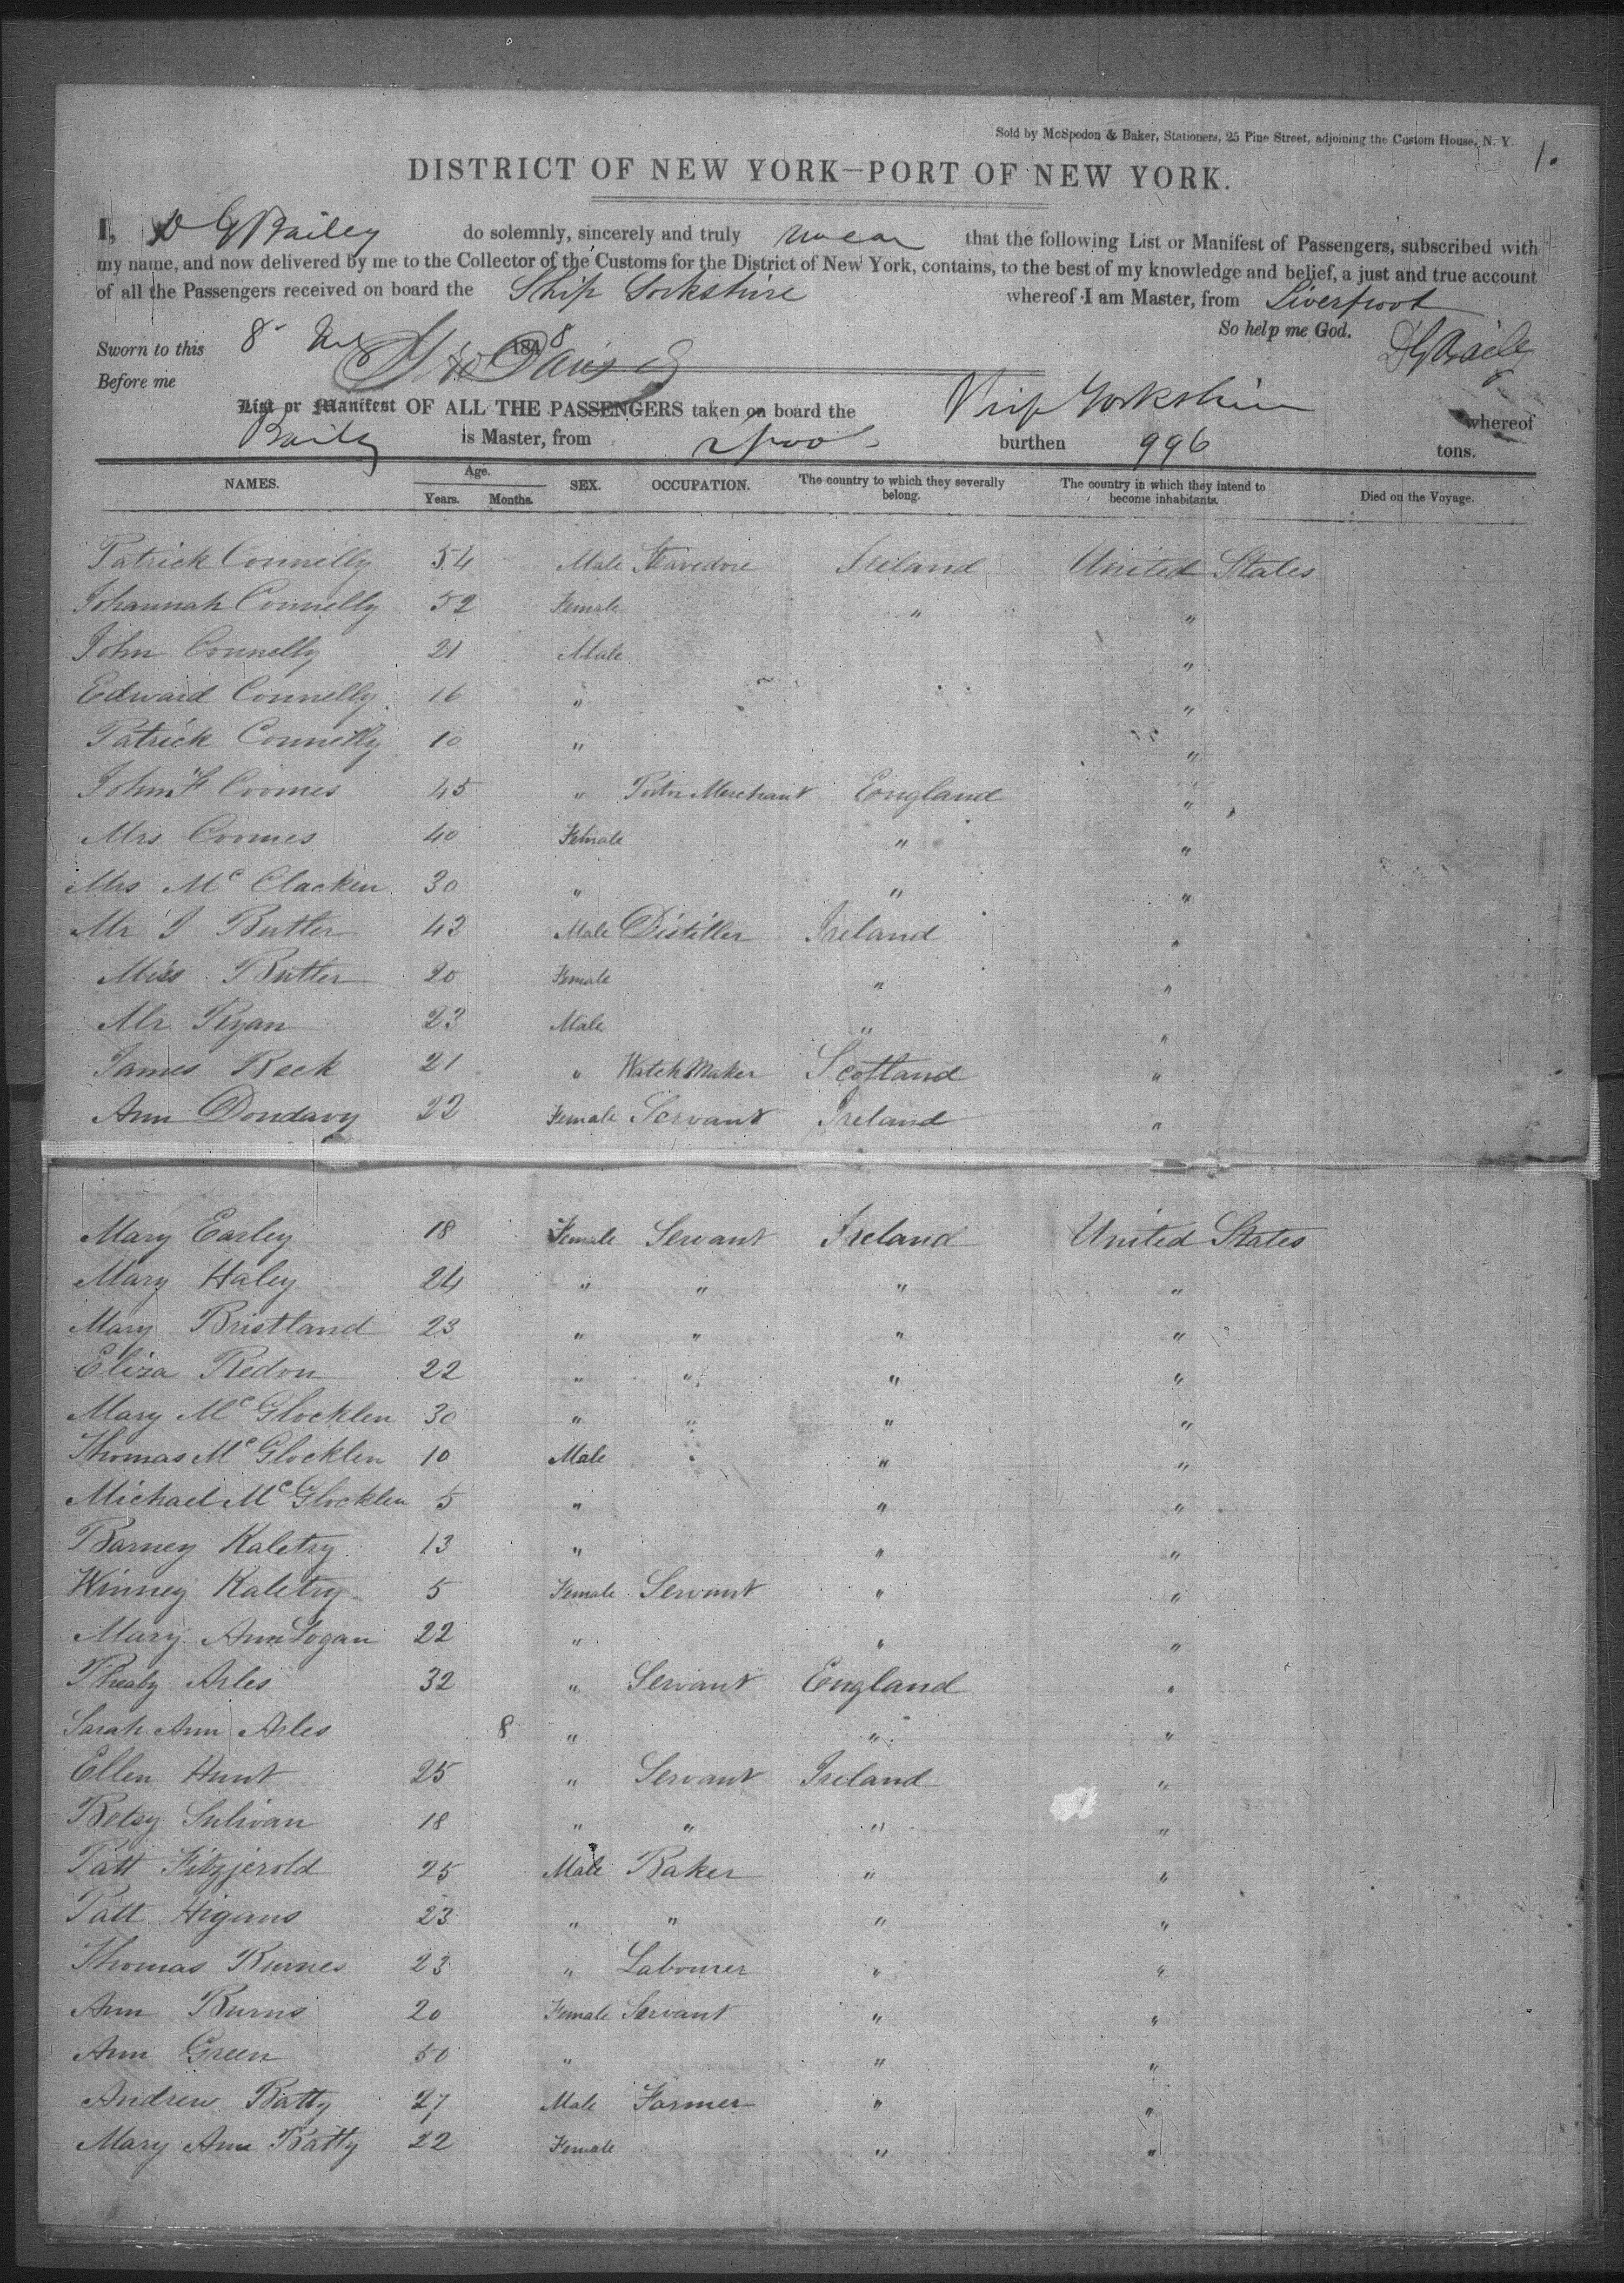 Sold by McSpedon & Baker, Stationers, 25 Pine Street, adjoining the Custom House, N. Y.
1.
DISTRICT OF NEW YORK—PORT OF NEW YORK.
I, D G Bailey do solemnly, sincerely and truly swear that the following List or Manifest of Passengers, subscribed with
my name, and now delivered by me to the Collector of the Customs for the District of New York, contains, to the best of my knowledge and belief, a just and true account
of all the Passengers received on board the Ship Yorkshire whereof I am Master, from Liverpool
So help me God.
Sworn to this 8 1848 D G Bailey
Before me
List or Manifest OF ALL THE PASSENGERS taken on board the Ship Yorkshire whereof
Bailey is Master, from Lpool burthen 996 tons.
NAMES. Age. Years. Months. SEX. OCCUPATION. The country to which they severally belong. The country in which they intend to become inhabitants. Died on the Voyage.
Patrick Connelly 54 Male Stavedore Ireland United States
Johannah Connelly 52 Female " "
John Connelly 21 Male "
Edward Connelly 16 " "
Patrick Connelly 10 " "
John F Coomes 45 " Porter Merchant England "
Mrs Coomes 40 Female " "
Mrs Mc Clacken 30 " " "
Mr J Butler 42 Male Distiller Ireland "
Miss Butler 20 Female " "
Mr Ryan 23 Male " "
James Reek 21 " Watch Maker Scotland "
Ann Dondavy 22 Female Servant Ireland "
Mary Earley 18 Female Servant Ireland United States
Mary Haley 24 " " " "
Mary Bristland 23 " " " "
Eliza Redon 22 " " " "
Mary Mc Glocklen 30 " " " "
Thomas Mc Glocklen 10 Male " "
Michael Mc Glocklen 5 " " "
Barney Kaletry 13 " " "
Winney Kaletry 5 Female Servant " "
Mary Ann Logan 22 " " "
Pheaby Arles 32 " Servant England "
Sarah Ann Arles 8 " " "
Ellen Hunt 25 " Servant Ireland "
Betsy Sulivan 18 " " " "
Patt Fitzjerold 25 Male Baker " "
Patt Higans 23 " " " "
Thomas Burnes 23 " Labourer " "
Ann Burns 20 Female Servant " "
Ann Green 50 " " "
Andrew Batty 27 Male Farmer " "
Mary Ann Batty 22 Female " "